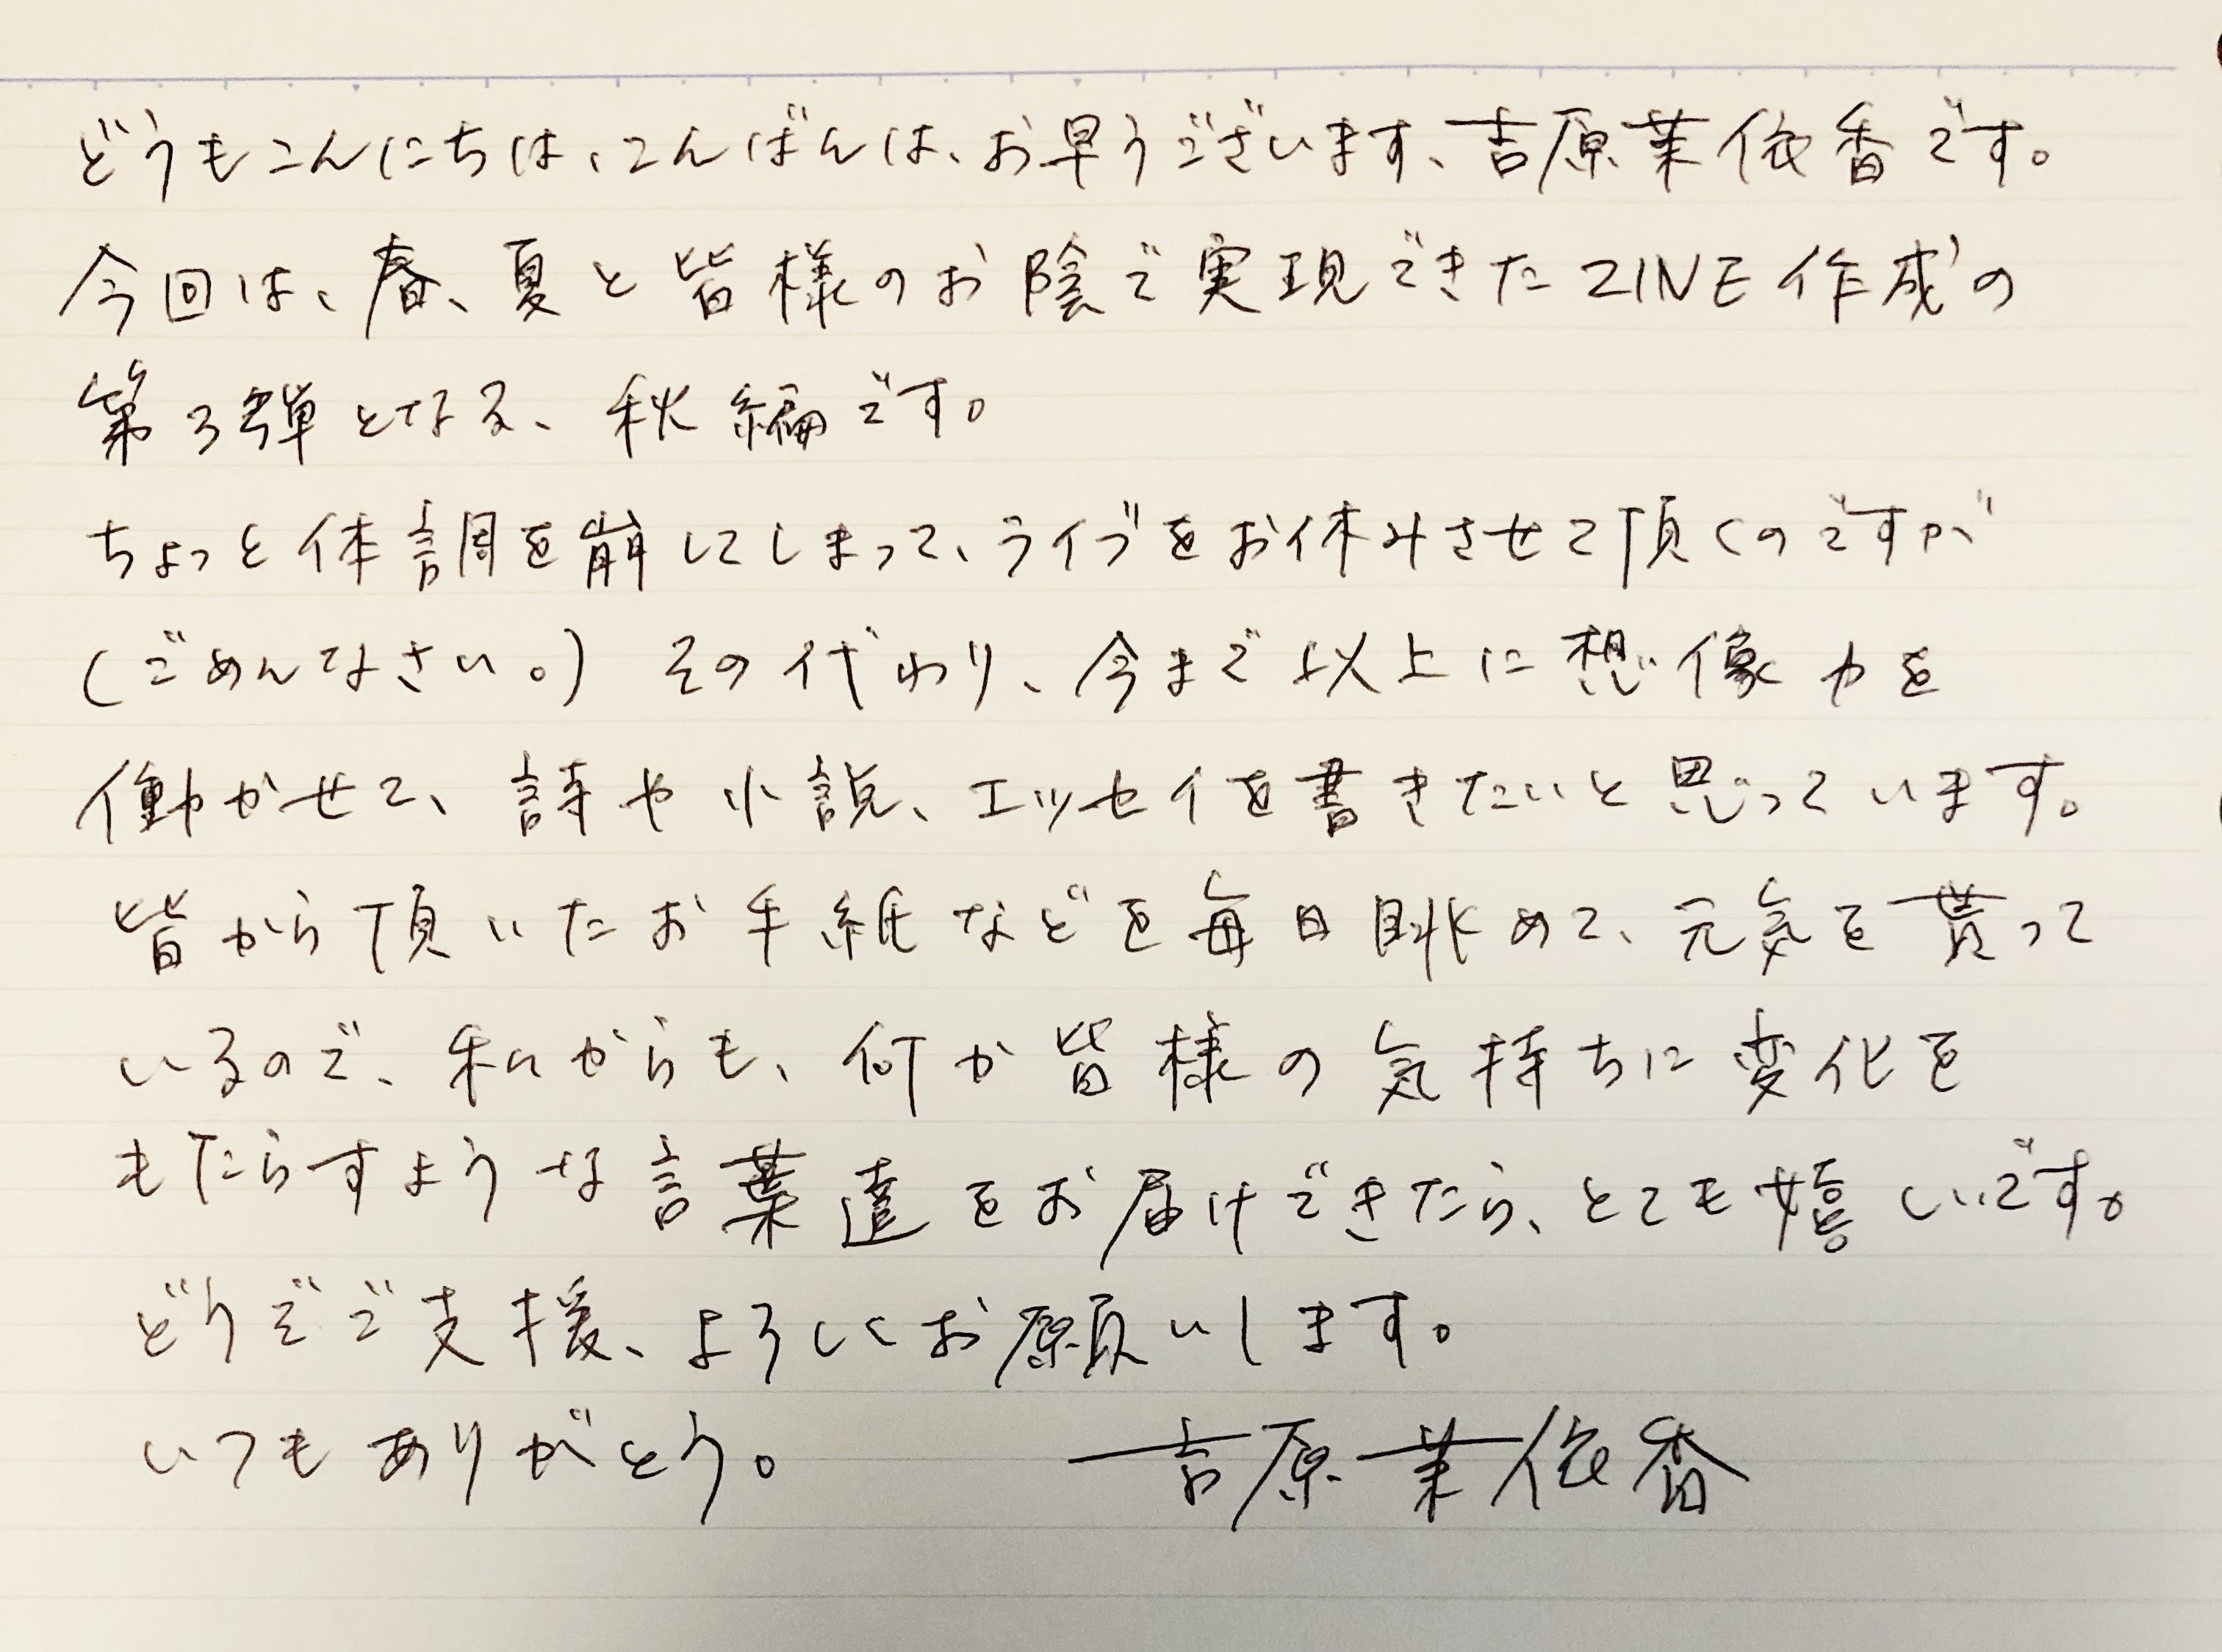 どうもこんにちは、こんばんは、お早うございます、吉原茉依香です。
今回は、春、夏と皆様のお陰で実現できたZINE作成の
第3弾となる、秋編です。
ちょっと体調を崩してしまって、ライブをお休みさせて頂くのですが
(ごめんなさい。) その代わり、今まで以上に想像力を
働かせて、詩や小説、エッセイを書きたいと思っています。
皆から頂いたお手紙などを毎日眺めて、元気を貰って
いるので、私からも、何か皆様の気持ちに変化を
もたらすような言葉達をお届けできたら、とても嬉しいです。
どうぞご支援、よろしくお願いします。
いつもありがとう。 吉原茉依香